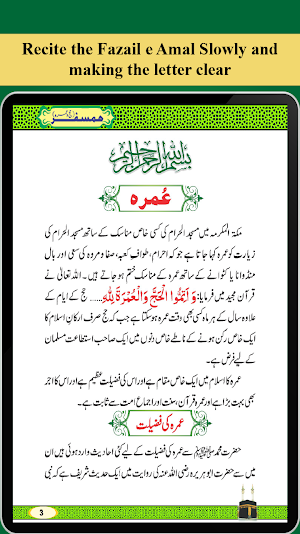 Recite the Fazail e Amal Slowly and
making the letter clear
ہمسفر
بسم الله الرحمن الرحیم
عُمرہ
مکۃ المکرمہ میں مسجد الحرام کی کسی خاص مناسک کے ساتھ مسجد الحرام کی
زیارت کو عمرہ کہا جاتا ہے جو کہ احرام، طواف کعبہ، صفا و مروہ کی سعی اور بال
منڈوانا یا کٹوانے کے ساتھ عمرہ کے مناسک ختم ہو جاتے ہیں۔ اللہ تعالیٰ نے
قرآن مجید میں فرمایا: وَاَتِمُّوا الْحَجَّ وَالْعُمْرَةَ لِلّٰهِ..... حج کے ایام کے
علاوہ سال کے ہر ماہ کسی بھی دقت عمرہ ہو سکتا ہے جب کہ حج صرف ارکانِ اسلام کا
ایک خاص رکن ہونے کے ناطے خاص دنوں میں ایک صاحب استطاعت مسلمان
کے لیے فرض ہے۔
عمرہ کا اسلام میں ایک خاص مقام ہے اور اس کی فضیلت عظیم ہے اور اس کا اجر
بھی بہت بڑا ہے اور عمرہ قرآن، سنت اور اجماع امت سے ثابت ہے۔
عمرہ کی فضیلت
حضرت محمد ﷺ سے عمرہ کی فضیلت کے لیے کئی احادیث وارد ہوئی ہیں ان
میں سے حضرت ابو ہریرہ رضی اللہ عنہ کی روایت میں ایک حدیث شریف ہے کہ نبی
3